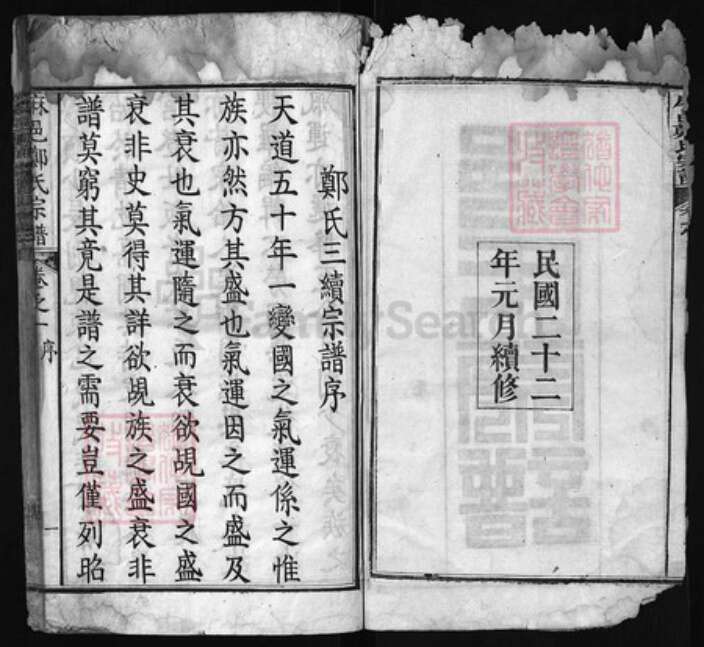 民國二十二
年元月續修
鄭氏三續宗譜序
天道五十年一變國之氣運係之惟
族亦然方其盛也氣運因之而盛及
其衰也氣運隨之而衰欲覘國之盛
衰非史莫得其詳欲覘族之盛衰非
譜莫窮其竟是譜之需要豈僅列昭
麻邑鄭氏宗譜 卷之一 序 一
FamilySearch